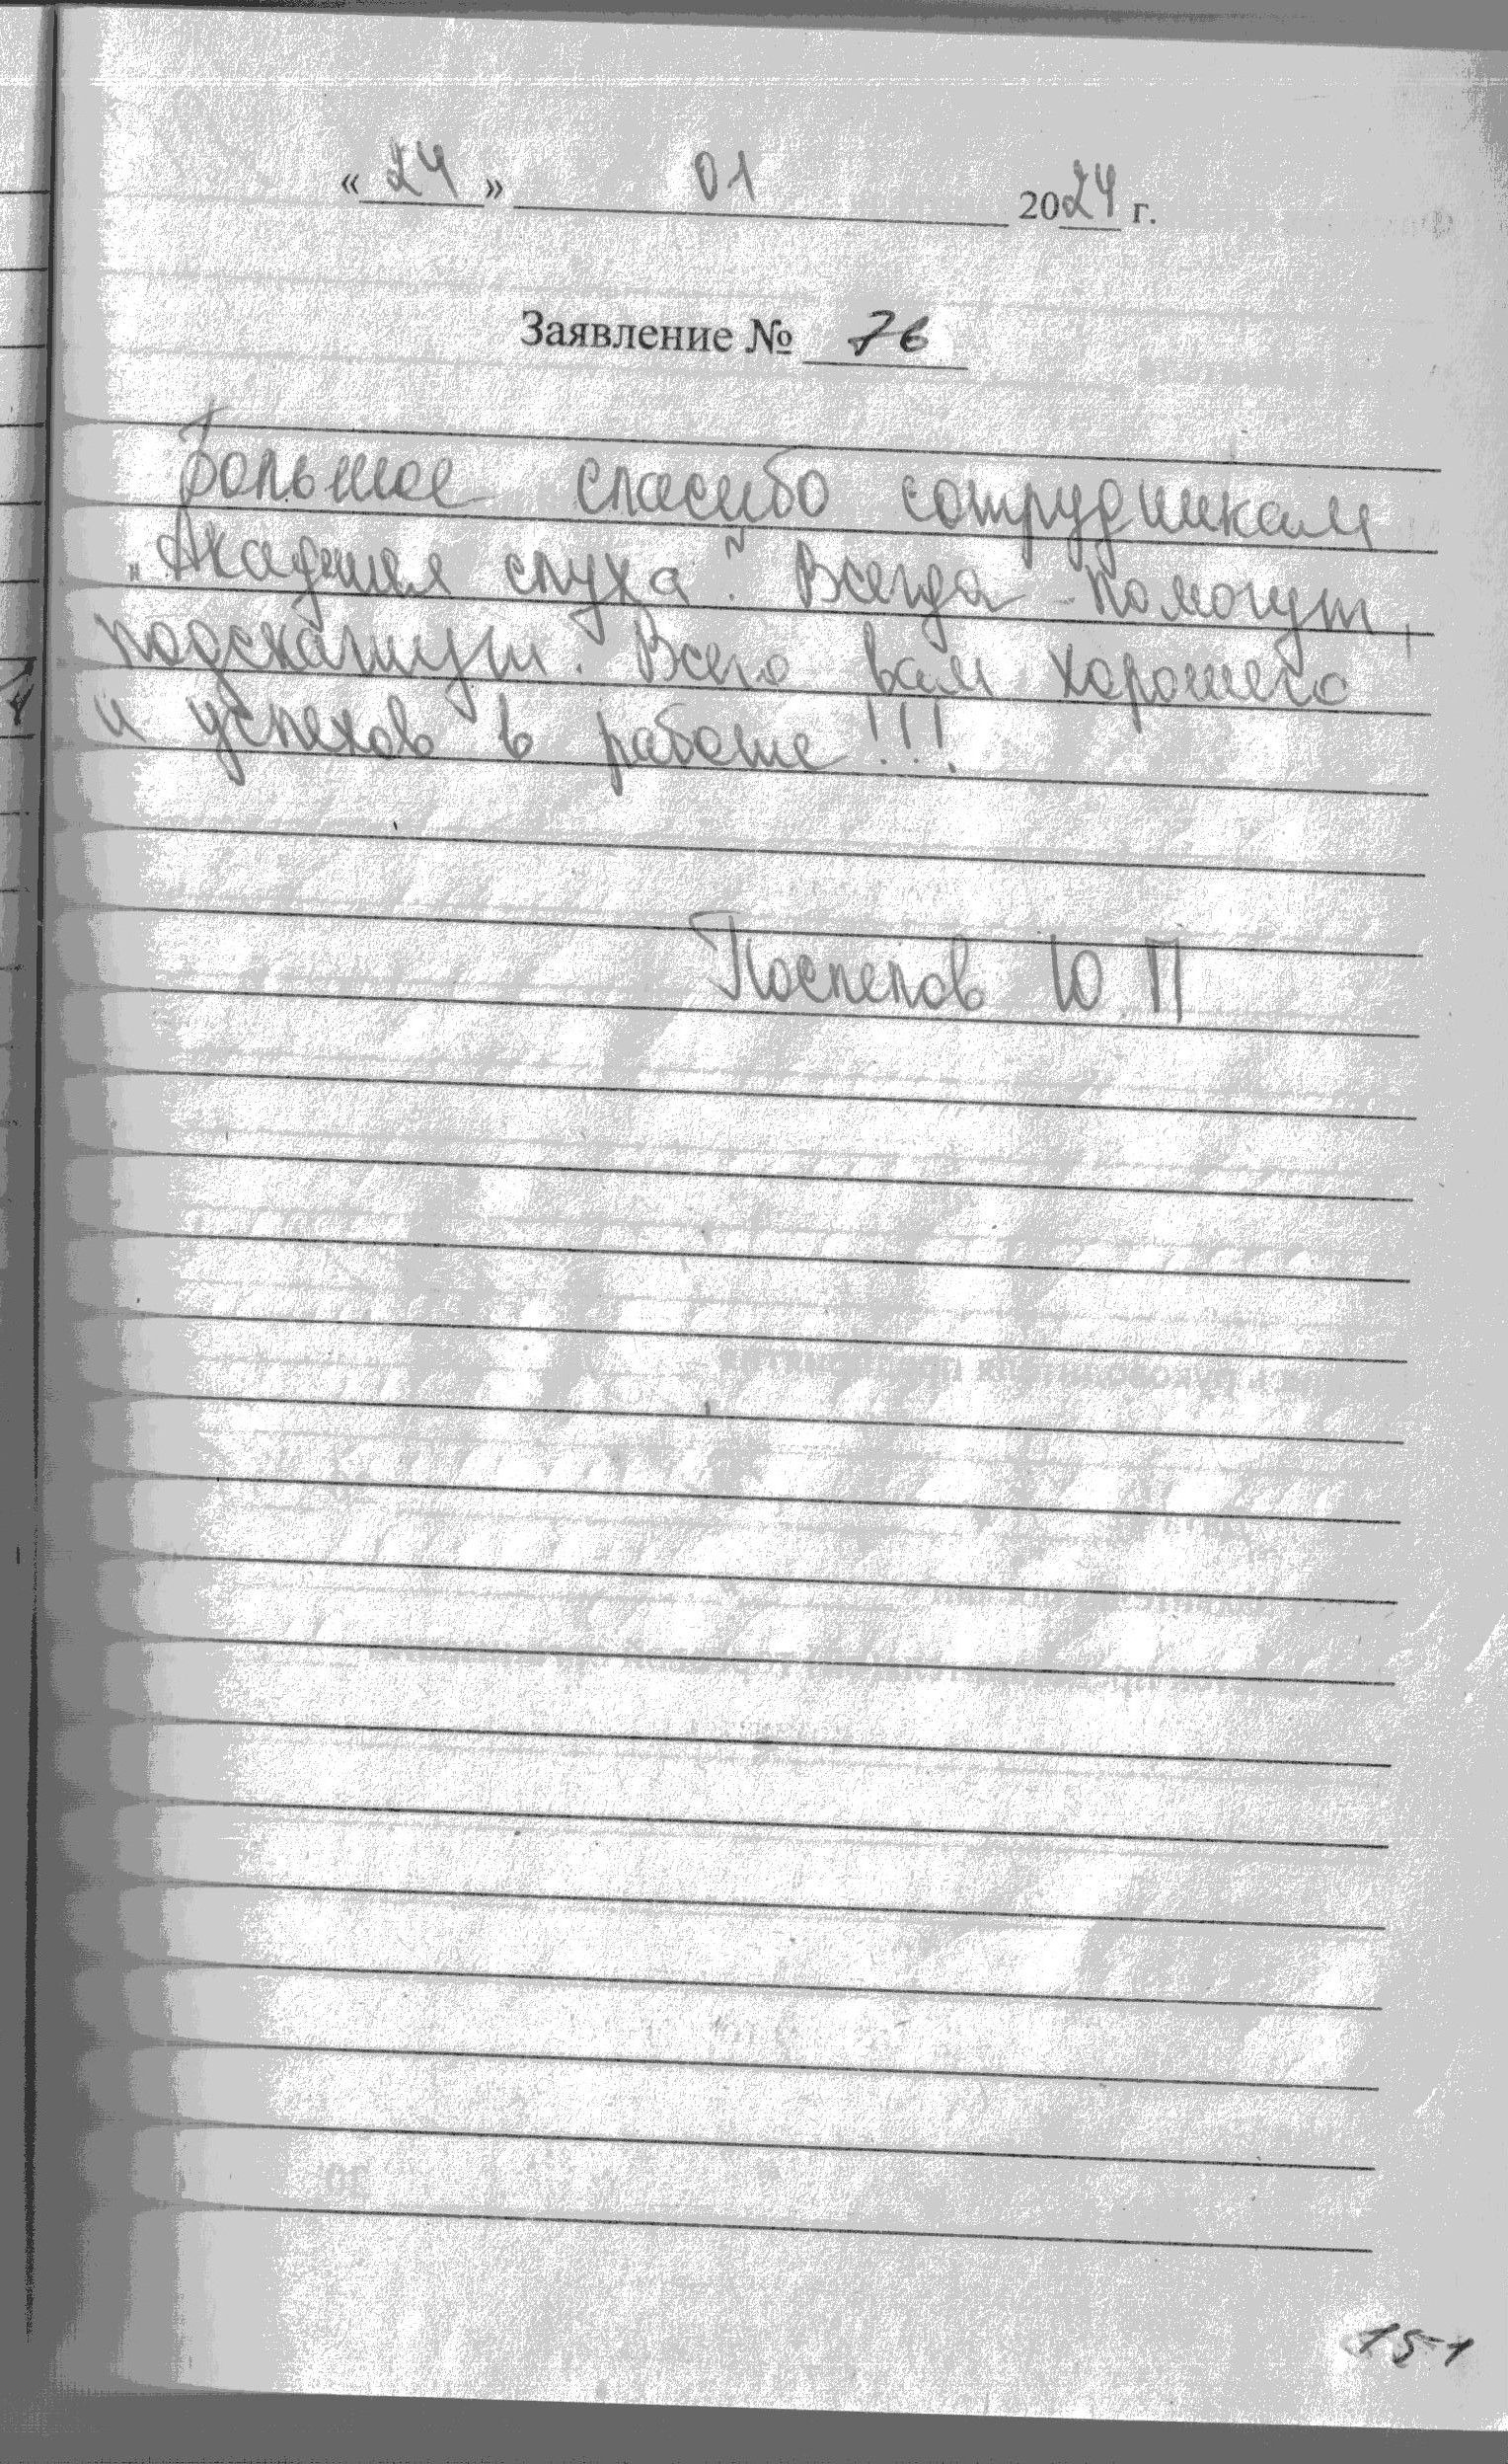 « 24 » 01 2024 г.
Заявление № 76
Большое спасибо сотрудникам
„Академия слуха". Всегда помогут,
подскажут. Всего вам хорошего
и успехов в работе!!!
Поспелов Ю.П
151